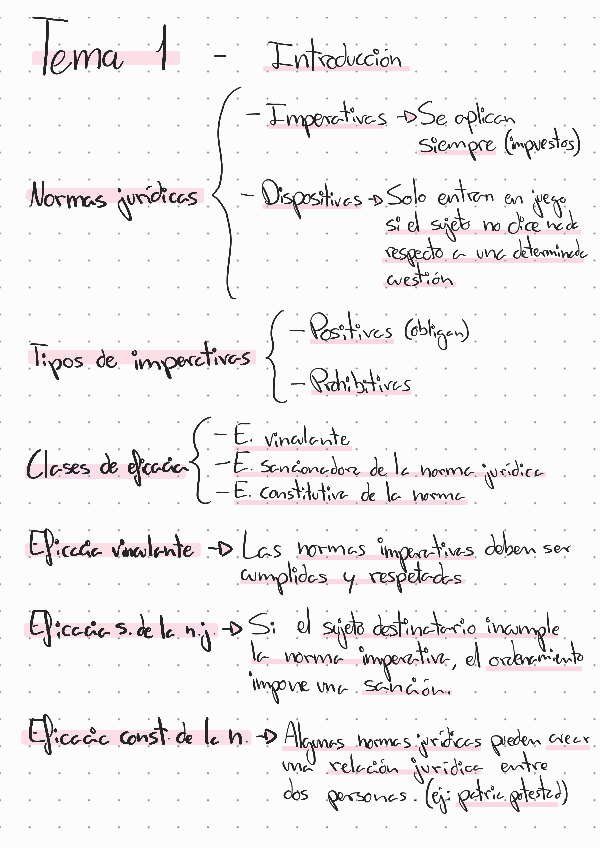 Tema 1 - Introducción
- Imperativas → Se aplican
siempre (impuestos)
Normas jurídicas
- Dispositivas → Solo entran en juego
si el sujeto no dice nada
respecto a una determinada
cuestión
Tipos de imperativas
- Positivas (obligan)
- Prohibitivas
Clases de eficacia
- E. vinculante
- E. sancionadora de la norma jurídica
- E. constitutiva de la norma
Eficacia vinculante → Las normas imperativas deben ser
cumplidas y respetadas
Eficacia s. de la n.j. → Si el sujeto destinatario incumple
la norma imperativa, el ordenamiento
impone una sanción.
Eficacia const. de la n. → Algunas normas jurídicas pueden crear
una relación jurídica entre
dos personas. (ej: patria potestad)